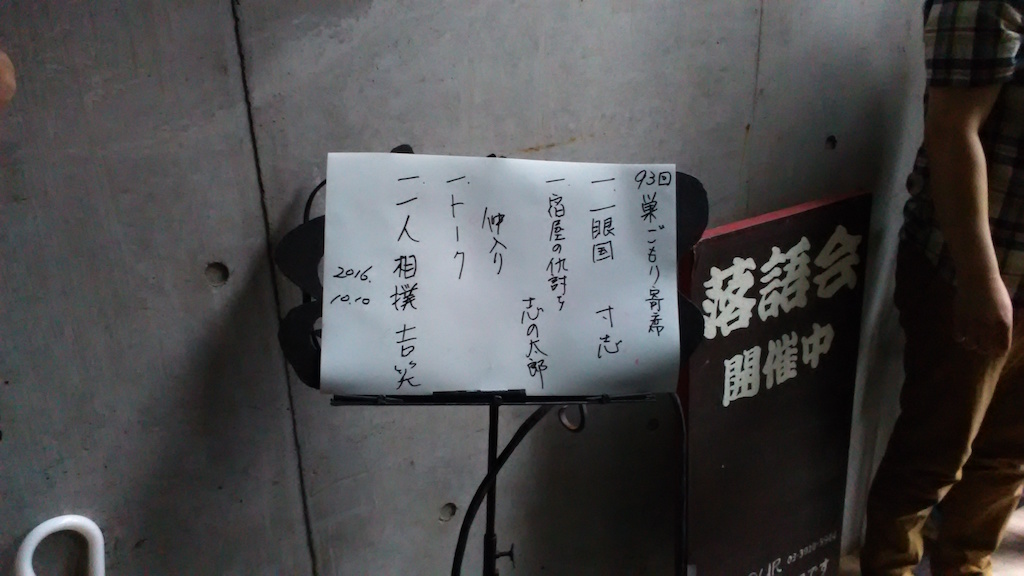 93回巣ごもり寄席
一. 一眼国 寸志
一. 宿屋の仇討ち 志の太郎
仲入り
一. トーク
一. 二人相撲 吉笑
2016.
10.10
落語会
開催中
です